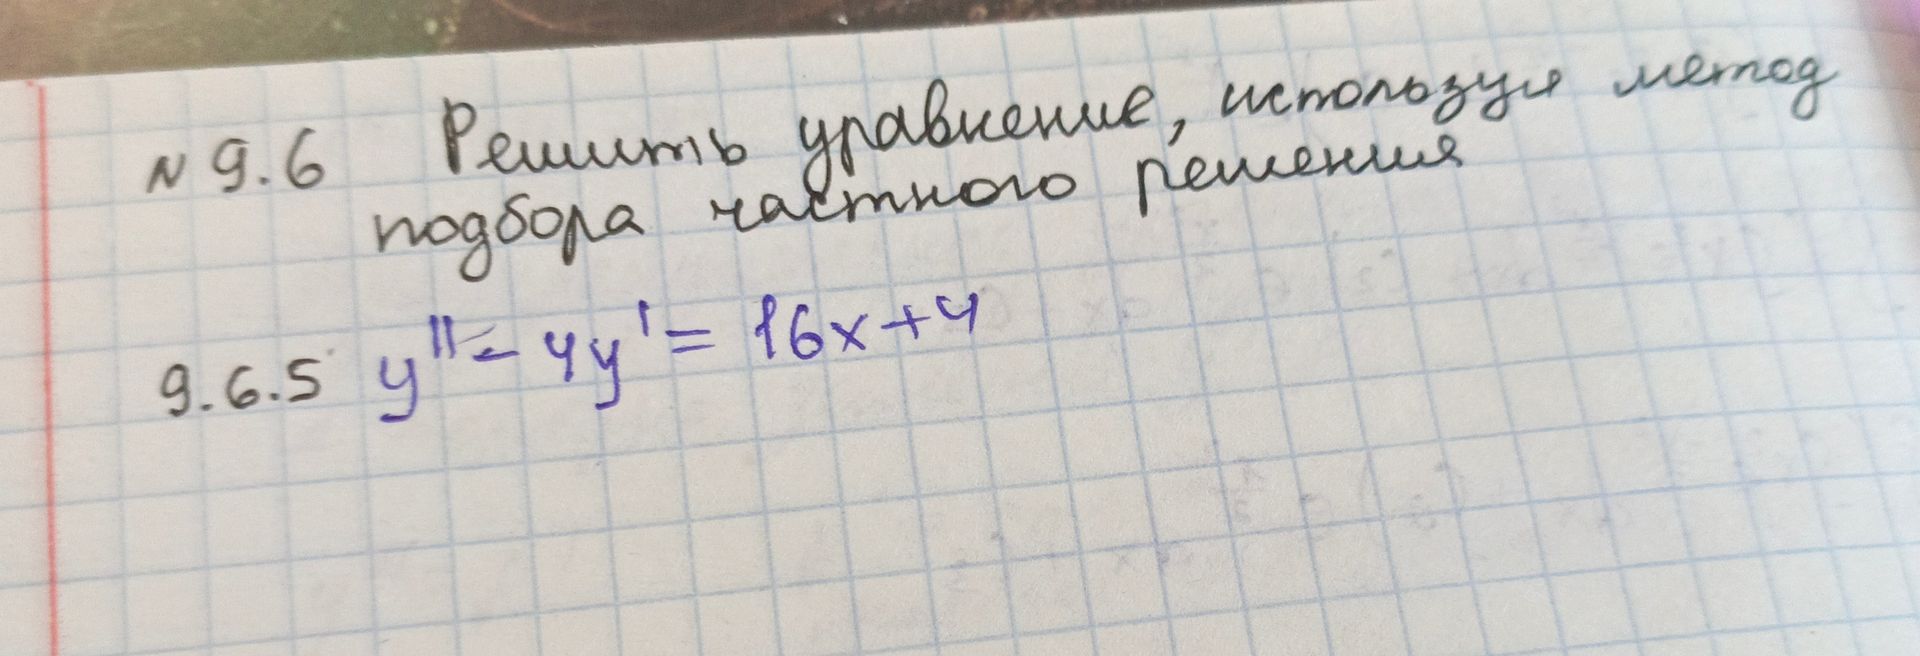 N 9.6 Решить уравнение, используя метод
подбора частного решения
9.6.5 y'' - 4y' = 16x+4